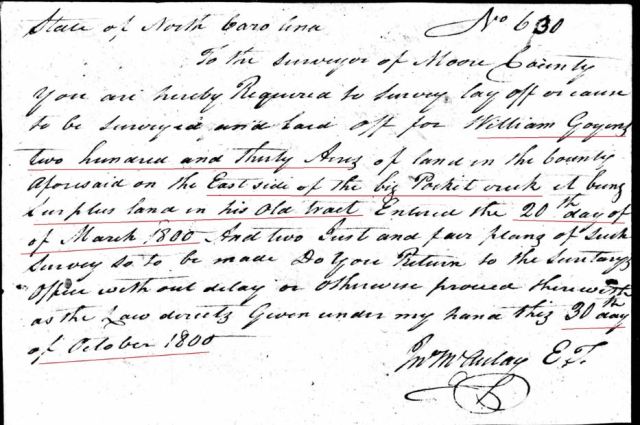 State of North Carolina No 630
To the surveyor of Moore County
You are hereby Required to survey lay off or cause
to be surveyed and Laid off for William Goyens
two hundred and thirty Acrez of land in the County
Aforesaid on the East side of the big Pocket creek it being
Surplus land in his Old tract Entered the 20th day of
of March 1800 And two Just and fair planz of Such
Survey so to be made Do You Return to the Secretarys
Office with out delay or otherwise proceed therewith
as the Law directz Given under my hand thiz 30th day
of October 1800
Jno McAulay E T